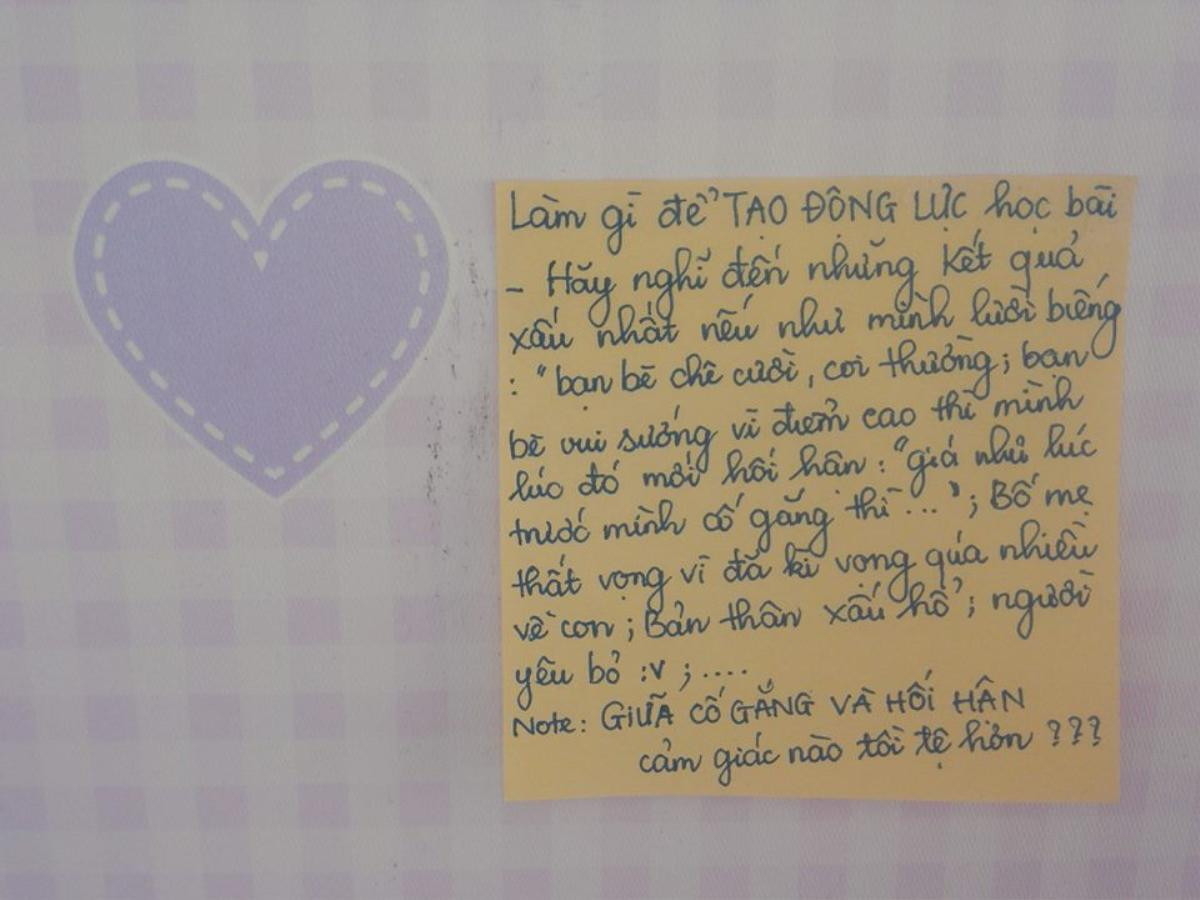 Làm gì để TẠO ĐỘNG LỰC học bài
- Hãy nghĩ đến những kết quả
xấu nhất nếu như mình lười biếng
: "bạn bè chê cười, coi thường; bạn
bè vui sướng vì điểm cao thì mình
lúc đó mới hối hận: "giá như lúc
trước mình cố gắng thì..."; Bố mẹ
thất vọng vì đã kì vọng qúa nhiều
về con; Bản thân xấu hổ; người
yêu bỏ :v ;....
Note: GIỮA CỐ GẮNG VÀ HỐI HẬN
cảm giác nào tồi tệ hơn ???